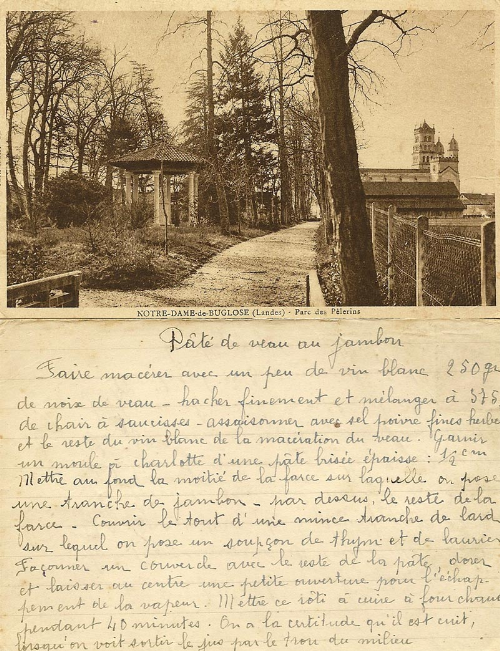 NOTRE-DAME-de-BUGLOSE (Landes) - Parc des Pèlerins
Pâté de veau au jambon
Faire macérer avec un peu de vin blanc 250 gr
de noix de veau - hacher finement et mélanger à 375
de chair à saucisses - assaisonner avec sel poivre fines herbe
et le reste du vin blanc de la macération du veau. Garnir
un moule à charlotte d'une pâte brisée épaisse : 1/2 cm
Mettre au fond la moitié de la farce sur laquelle on pose
une tranche de jambon - par dessus, le reste de la
farce - Couvrir le tout d'une mince tranche de lard
sur lequel on pose un soupçon de thym et de laurier
Façonner un couvercle avec le reste de la pâte, dorer
et laisser au centre une petite ouverture pour l'échap-
pement de la vapeur. Mettre ce rôti à cuire à four chaud
pendant 40 minutes. On a la certitude qu'il est cuit,
lorsqu'on voit sortir le jus par le trou du milieu